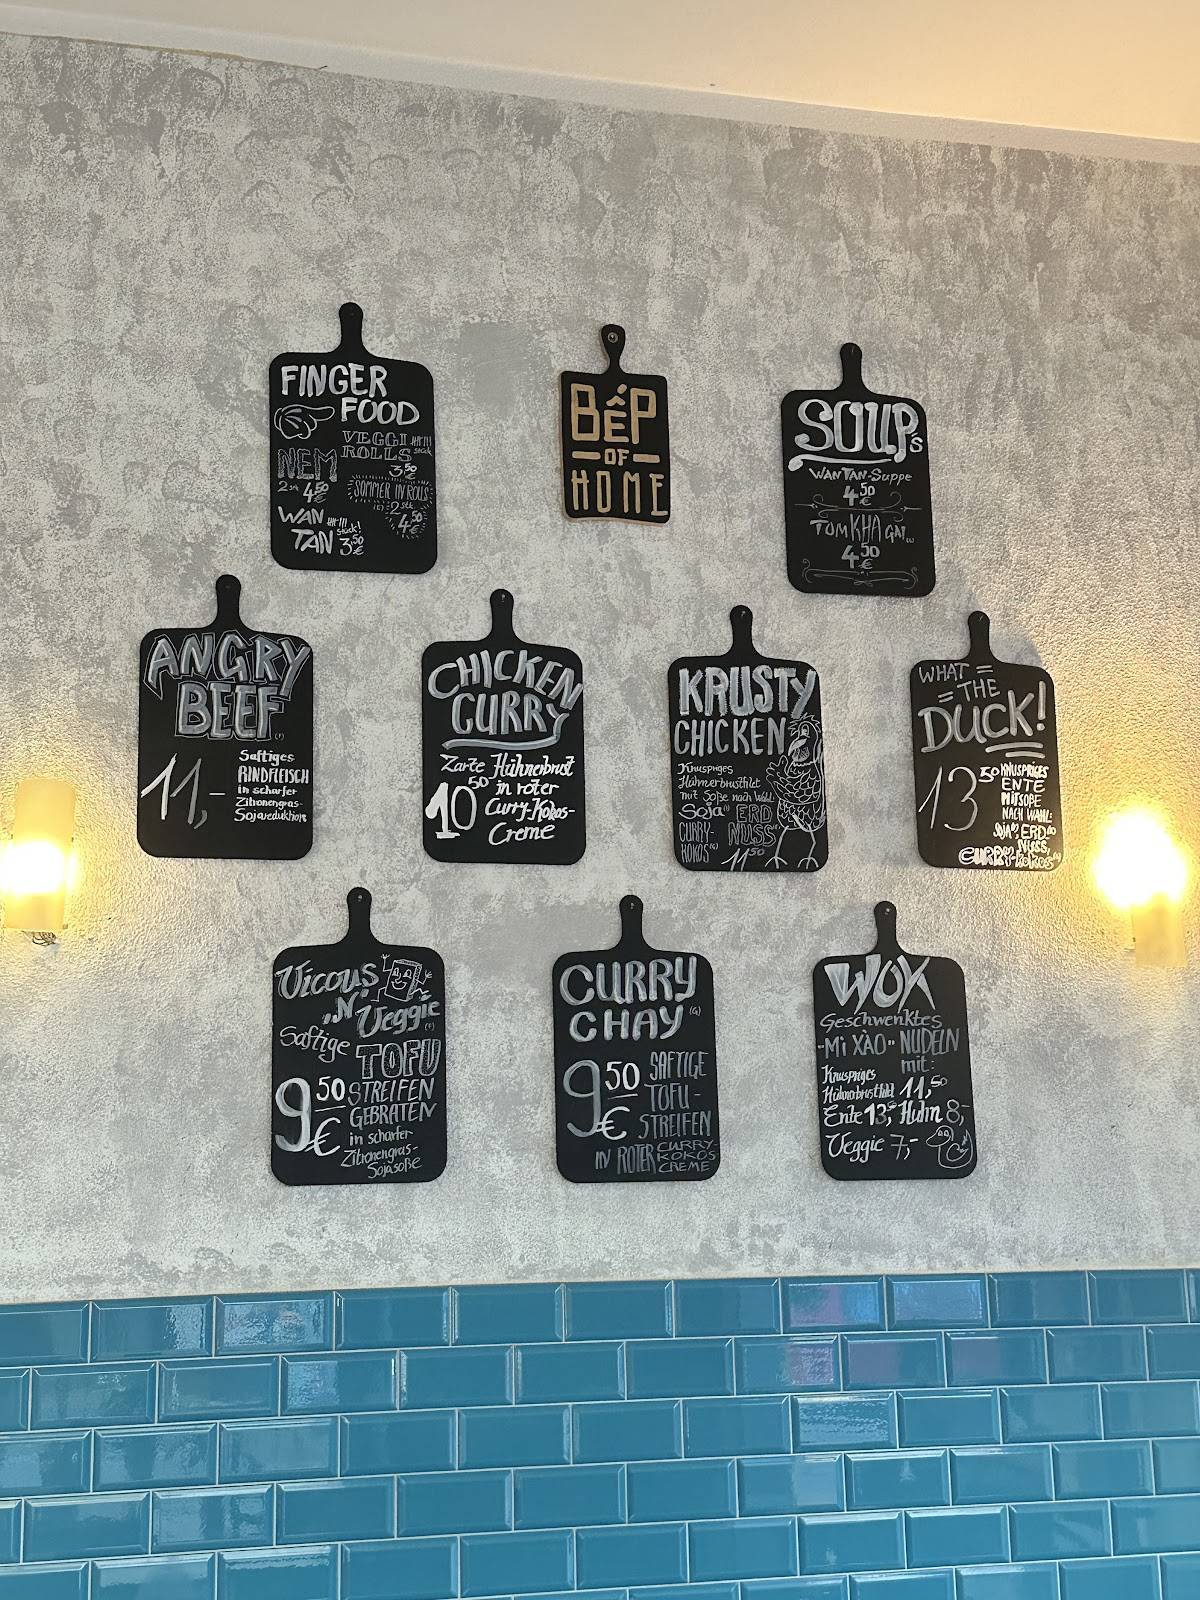 FINGER
FOOD
VEGGI
ROLLS
Stück
3,50
€
NEM
4,50
€
SOMMER IN ROLLS
2 Stk
4,50
€
WAN
TAN
Stück!
3,50
€
BẾP
OF
HOME
SOUP's
WANTAN-Suppe
4,50
€
TOM KHA GAI
4,50
€
ANGRY
BEEF
11,-
Saftiges
RINDFLEISCH
in scharfer
Zitronengras-
Sojareduktion
CHICKEN
CURRY
Zarte Hühnerbrust
in roter
Curry-Kokos-
Creme
10,50
KRUSTY
CHICKEN
Knuspriges
Hühnerbrustfilet
mit Soße nach Wahl:
Soja ERD
NUSS
CURRY-
KOKOS
11,50
WHAT
THE
DUCK!
13,50
KNUSPRIGES
ENTE
MIT SOßE
NACH WAHL:
SOJA, ERD
Nüss,
CURRY-KOKOS
Vicous
„N"
Veggie
Saftige
TOFU
9,50
€
STREIFEN
GEBRATEN
in scharfer
Zitronengras-
Sojasoße
CURRY
CHAY (G)
9,50
€
SAFTIGE
TOFU-
STREIFEN
IN ROTER CURRY-
KOKOS
CREME
WOK
Geschwenktes
"Mì XÀO" NUDELN
mit:
Knuspriges
Hühnerbrustfilet 11,50
Ente 13,- Huhn 8,-
Veggie 7,-